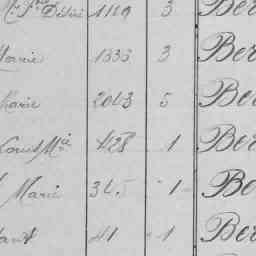 Désiré 1129 3 Ber
Marie 1333 3 Ber
Marie 2043 5 Ber
Louis Mie 428 1 Ber
Marie 345 1 Ber
41 1 Ber